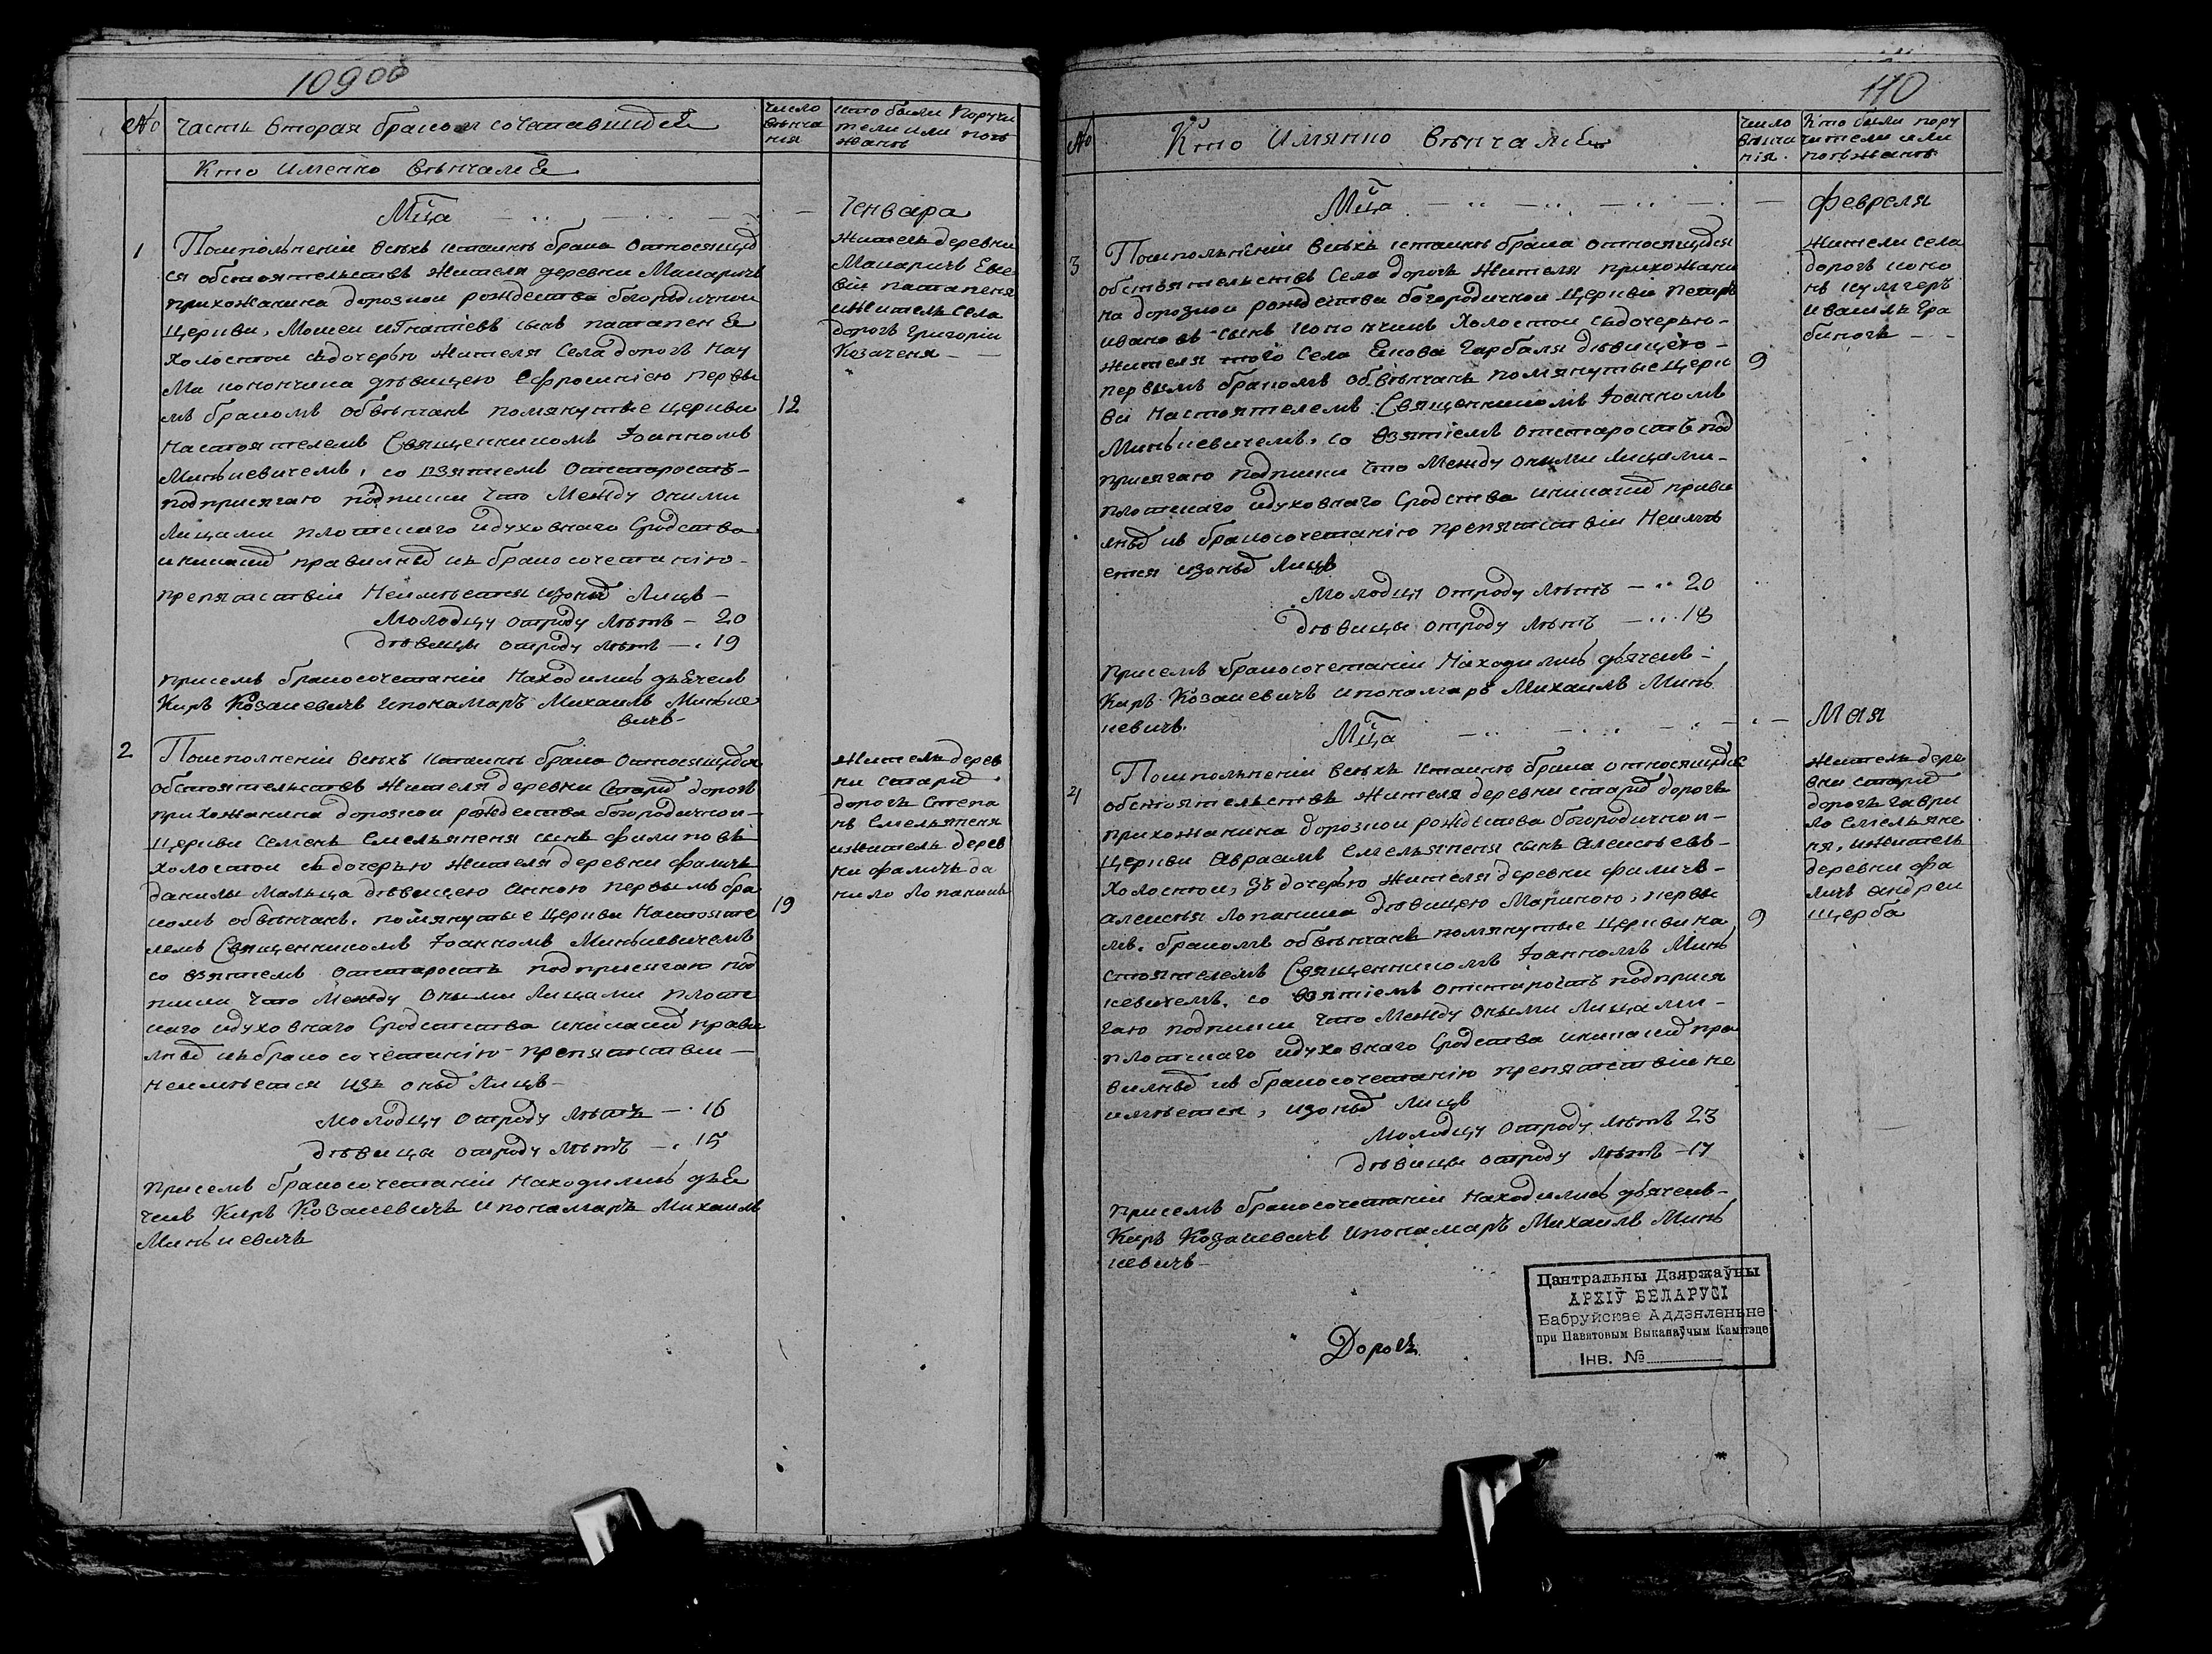 109об
№ Часть вторая бракомъ сочетавшихся
число вѣнча нія
кто были Поручи тели или поѣ жанѣ
Кто именно вѣнчался
Мц̃а Генвара
1
Поисполненіи всѣхъ ктаинѣ брака относящих
ся обстоятельствъ жителя деревни Макаричъ
прихожанина дорозкои рождества богородичнои
Церкви, Мошеи игнатіевъ сынъ патапеня
холостои сьдочерью жителя Села дорогъ Нау
ма конончика дѣвицею Ефросиніею первы
мъ бракомъ обвѣнчанъ помянутые церкви
12
Настоятелемъ Священникомъ Іоанномъ
Минкевичемъ, со взятіемъ отстаростъ
подприсягаю подписки что Между оними
Лицами плотскаго идуховнаго Сродства
иникаких правилныхъ кь бракосочетанію
препятствіи Неимѣется изоных Лицъ
Молодцу отроду лѣтъ - 20
дѣвицы отроду лѣтъ - 19
присемъ бракосочетаніи Находились дьячекъ
Киръ Козакевичъ ипонамаръ Михаилъ Минке
вичъ
житель деревни
Макаричъ Евсе
віи патапеня
ижитель Села
дорогъ Григоріи
Козаченя
2
Поисполненіи всѣхъ ктаинѣ брака относящихся
обстоятельствъ жителя деревни Старих дорогъ
прихожанина дорозкои рождества богородичнои
Церкви Семенъ Емельяненя сынъ филиповъ
холостои сьдочерью жителя деревни фаличъ
данилы Мальца дѣвицею Анною первымъ бра
комъ обвѣнчанъ, помянутые церкви Настояте
19
лемъ Священникомъ Іоанномъ Минкевичемъ
со взятіемъ отстаростъ подприсягаю под
писки что Между оными Лицами плотс
каго идуховнаго Сродства иникаких прави
лныхъ кьбракосочетанію препятствіи
неимѣется изь оных Лицъ
молодцу отроду лѣтъ - 16
дѣвицы отроду лѣтъ - 15
присемъ бракосочетаніи находились дья
чекъ Киръ Козакевичъ ипонамаръ Михаилъ
Минькевичъ
житель дерев
ни старих
дорогъ Степа
нъ Емельяненя
ижитель дерев
ни фаличъ да
нило Лопаникъ
110
№ Кто Имянно вѣнчался
Число вѣнча нія
Кто были пору чители или поѣжанѣ
Мц̃а февреля
3
Поисполненіи всѣхъ ктаинѣ брака относящихся
обстоятельствъ Села дорогъ жителя прихожани
на дорозкои рождества богородичнои Церкви Петръ
ивановъ сынъ конончикъ холостои сьдочерью
жителя того Села Якова Гарбаля дѣвицею
9
первымъ бракомъ обвѣнчанъ помянутые церк
ви Настоятелемъ Священникомъ Іоанномъ
Минькевичемъ, со взятіемъ отстаростъ под
присягаю подписки что Между оными Лицами
плотскаго идуховнаго Сродства иникаких прави
лныхъ кь бракосочетанію препятствіи Неимѣ
ется изоных Лицъ
Молодцу отроду лѣтъ - 20
дѣвицы отроду лѣтъ - 18
присемъ бракосочетаніи Находились дьячекъ
Киръ Козакевичъ ипонамаръ Михаилъ Минь
кевичъ.
жители села
дорогъ коно
нъ кулгеръ
иваиль Гра
биногъ
Мц̃а Мая
4
Поисполненіи всѣхъ ктаинѣ брака относящихся
обстоятельствъ жителя деревни старих дорогъ
прихожанина дорозкои рождества богородичнои
Церкви Авраамъ Емельяненя сынъ Алексѣевъ
холостои, зъдочерью жителя деревни фаличъ
алексѣя Лопаника дѣвицею Мариною, первы
мъ бракомъ обвѣнчанъ помянутые церкви на
9
стоятелемъ Священникомъ Іоанномъ Минь
кевичемъ, со взятіемъ отстаростъ подприся
гаю подписки что Между оными Лицами
плотскаго идуховнаго Сродства иникаких пра
вилныхъ кь бракосочетанію препятствіи не
имѣется, изоных лицъ
молодцу отроду лѣтъ 23
дѣвицы отроду лѣтъ - 17
присемъ бракосочетаніи находились дьячекъ
Киръ Козакевичъ ипонамаръ Михаилъ Минь
кевичъ
житель дере
вни старих
дорогъ гаври
ло Емельяне
ня, ижитель
деревни фа
личъ андреи
щерба
Дорогъ
Цэнтральны Дзяржаўны
АРХІЎ БЕЛАРУСІ
Бабруйскае Аддзяленьне
при Павятовым Выканаўчым Камітэце
Інв. №